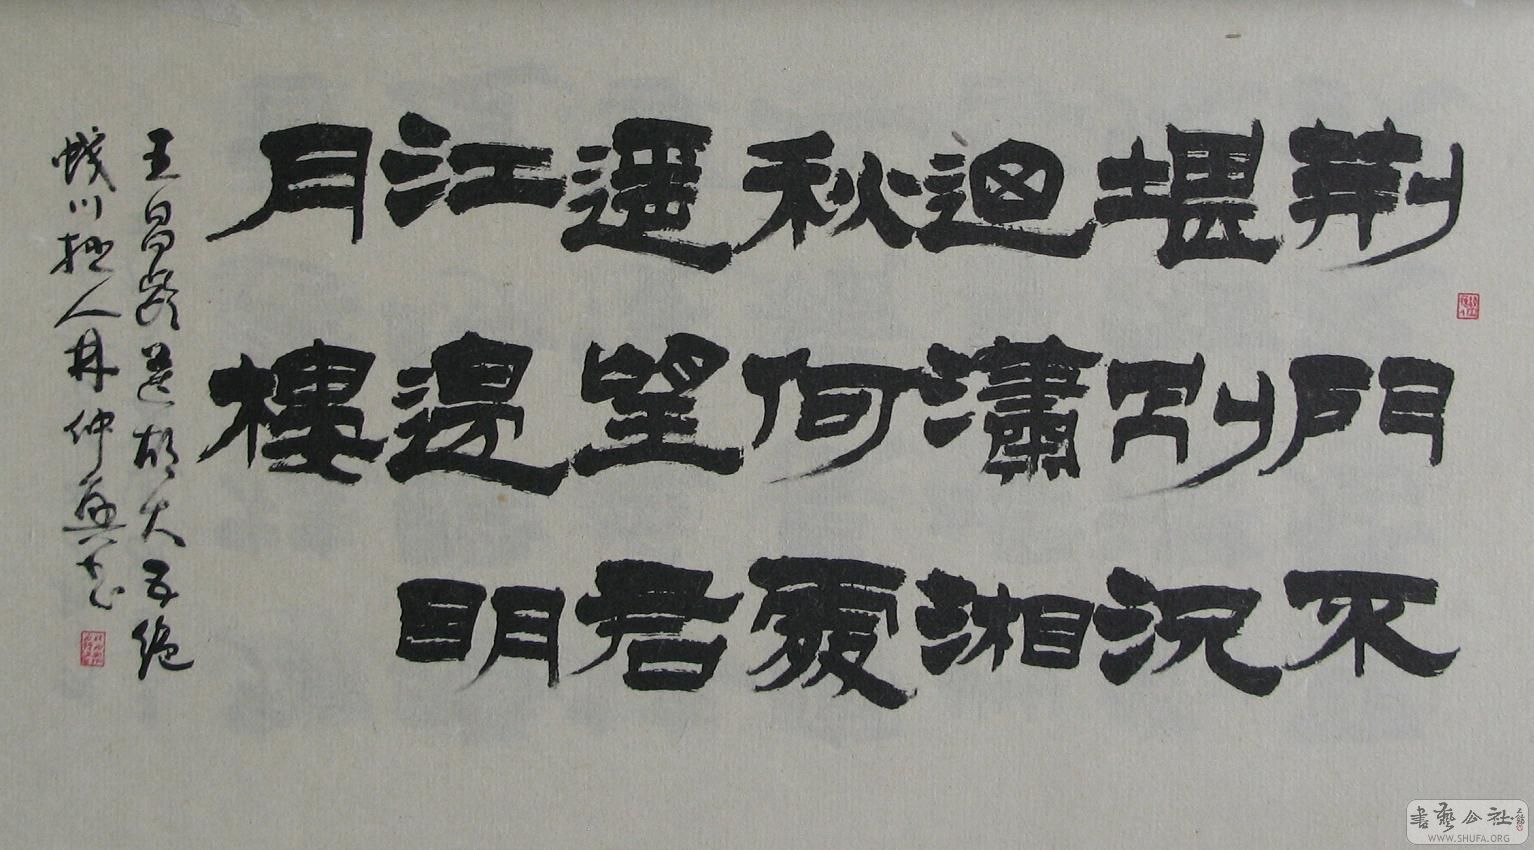 荆門不
堪別況
迺瀟湘
秋何處
遥望君
江邊明
月樓
王昌齡送胡大五絶
川人林仲興書
書藝公社
WWW.SHUFA.ORG